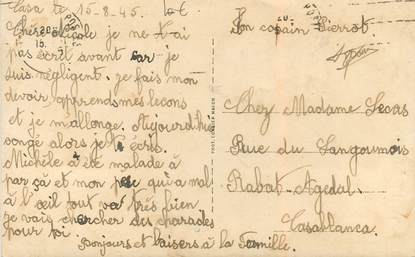 Casa le 15.8.45.
Chère Nicole je ne t'ai
pas écrit avant car je
suis négligent. je fais mon
devoir, apprends mes leçons
et je m'allonge. Aujourd'hui
congé alors je t'écris.
Michèle a été malade à
par çà et mon père qui a mal
à l'œil tout va très bien
je vais chercher des charades
pour toi.
Bonjours et baisers à la famille.
Ton copain Pierrot.
Chez Madame Lecas
Rue du Langoumois
Rabat-Agedal.
Casablanca.